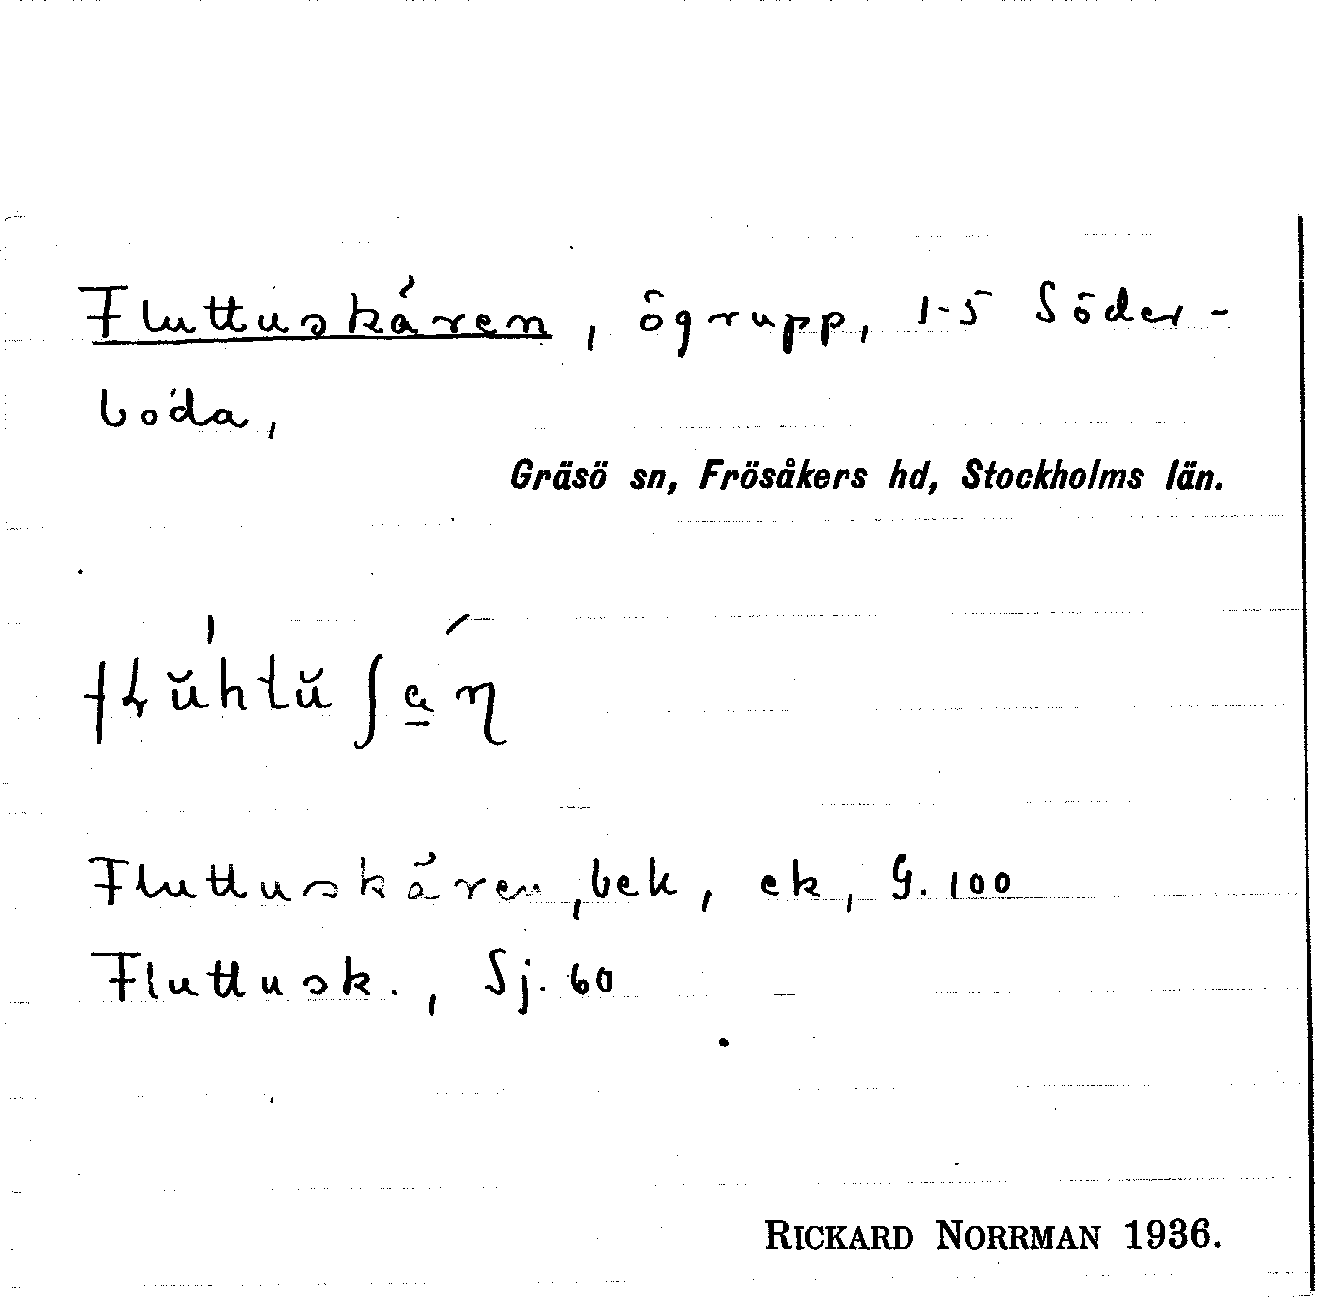 Fluttuskären, ögrupp, 1-5 Söder-
boda,
Gräsö sn, Frösåkers hd, Stockholms län.
Fluttuskären, bek, ek, G. 100
Fluttusk., Sj. 60
RICKARD NORRMAN 1936.